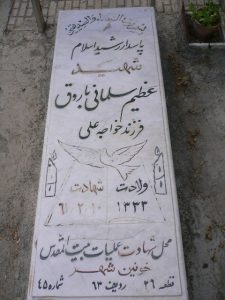 پاسدار رشید اسلام
شهید
عظیم سلمانی باروق
فرزند خواجه علی
ولادت شهادت
۱۳۳۳ ۶۱/۲/۱۰
محل شهادت عملیات بیت المقدس
خونین شهر
قطعه ۲۶ ردیف ۶۳ شماره ۴۵